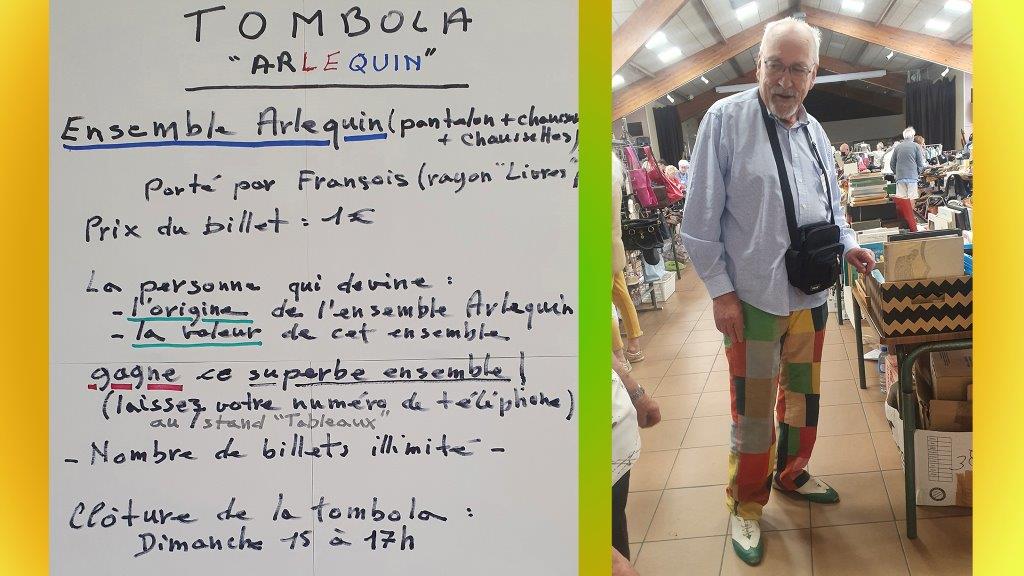 TOMBOLA
"ARLEQUIN"
Ensemble Arlequin (pantalon + chauss
+ chaussettes)
Porté par François (rayon "Livres"
Prix du billet : 1€
La personne qui devine :
- l'origine de l'ensemble Arlequin
- la valeur de cet ensemble
gagne ce superbe ensemble !
(laissez votre numéro de téléphone)
au stand "Tableaux"
- Nombre de billets illimité -
Clôture de la tombola :
Dimanche 15 à 17h